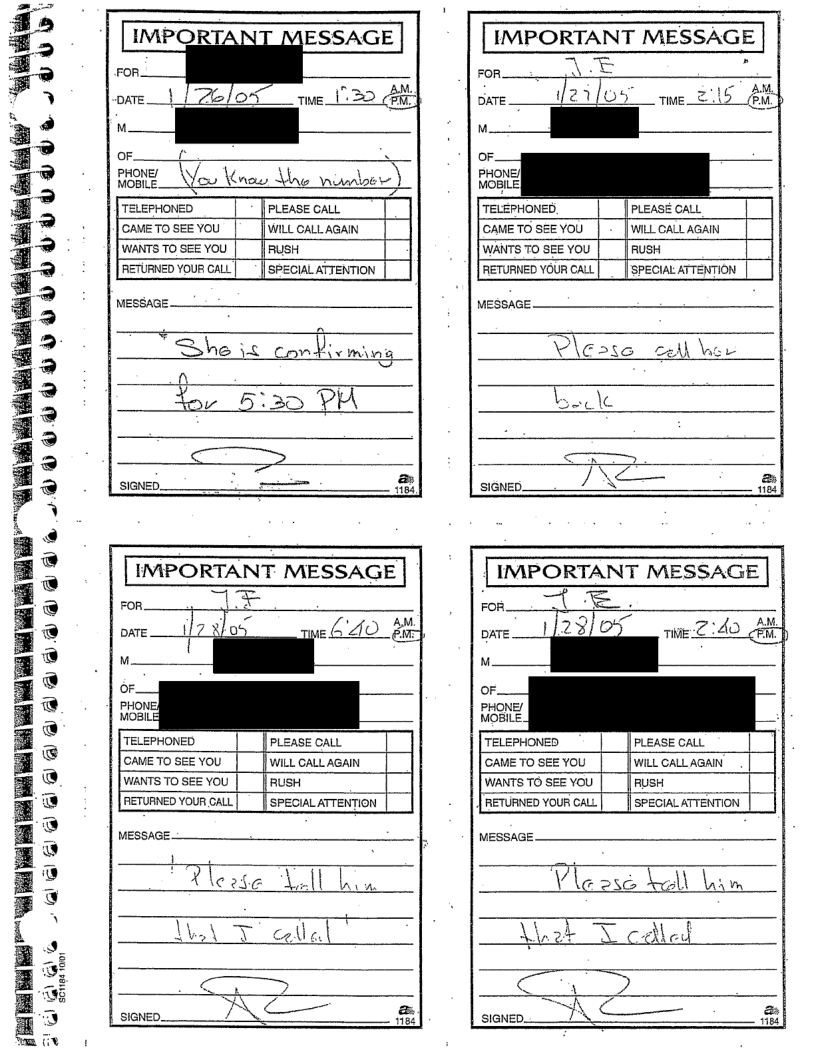 IMPORTANT MESSAGE
FOR
DATE 1/26/05 TIME 1:30 A.M. P.M.
M
OF
PHONE/ MOBILE (You Know the number)
TELEPHONED PLEASE CALL
CAME TO SEE YOU WILL CALL AGAIN
WANTS TO SEE YOU RUSH
RETURNED YOUR CALL SPECIAL ATTENTION
MESSAGE
She is confirming
for 5:30 PM
SIGNED
1184
IMPORTANT MESSAGE
FOR J.E
DATE 1/27/05 TIME 2:15 A.M. P.M.
M
OF
PHONE/ MOBILE
TELEPHONED PLEASE CALL
CAME TO SEE YOU WILL CALL AGAIN
WANTS TO SEE YOU RUSH
RETURNED YOUR CALL SPECIAL ATTENTION
MESSAGE
Please call her
back
SIGNED
1184
IMPORTANT MESSAGE
FOR J.E
DATE 1/28/05 TIME 6:40 A.M. P.M.
M
OF
PHONE/ MOBILE
TELEPHONED PLEASE CALL
CAME TO SEE YOU WILL CALL AGAIN
WANTS TO SEE YOU RUSH
RETURNED YOUR CALL SPECIAL ATTENTION
MESSAGE
Please tell him
that I called
SIGNED
1184
IMPORTANT MESSAGE
FOR J.E.
DATE 1/28/05 TIME 2:40 A.M. P.M.
M
OF
PHONE/ MOBILE
TELEPHONED PLEASE CALL
CAME TO SEE YOU WILL CALL AGAIN
WANTS TO SEE YOU RUSH
RETURNED YOUR CALL SPECIAL ATTENTION
MESSAGE
Please tell him
that I called
SIGNED
1184
SC1184 10/01